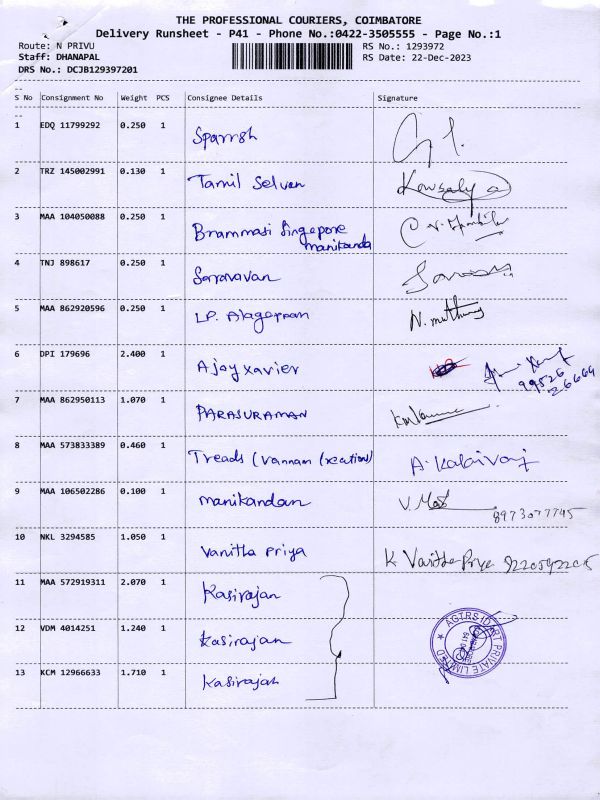 THE PROFESSIONAL COURIERS, COIMBATORE
Delivery Runsheet - P41 - Phone No.:0422-3505555 - Page No.:1
Route: N PRIVU
Staff: DHANAPAL
DRS No.: DCJB129397201
RS No.: 1293972
RS Date: 22-Dec-2023
S No Consignment No Weight PCS Consignee Details Signature
1 EDQ 11799292 0.250 1
2 TRZ 145002991 0.130 1 Tamil Selvan Kowsalya
3 MAA 104050088 0.250 1 Brammasi Singepore
manikanda
4 TNJ 898617 0.250 1 Saravavan
5 MAA 862920596 0.250 1 LP. Alagappan N. muthu
6 DPI 179696 2.400 1 Ajoy xavier
99526
26664
7 MAA 862950113 1.070 1 PARASURAMAN
8 MAA 573833389 0.460 1 Treads (Vannam Creations) A. Kalaivani
9 MAA 106502286 0.100 1 manikandan V. Mas
8973077745
10 NKL 3294585 1.050 1 Vanitha Priya K Vanitha Priya
11 MAA 572919311 2.070 1 Kasirajan
12 VDM 4014251 1.240 1 Kasirajan
13 KCM 12966633 1.710 1 Kasirajan
PRIVATE LIMITED